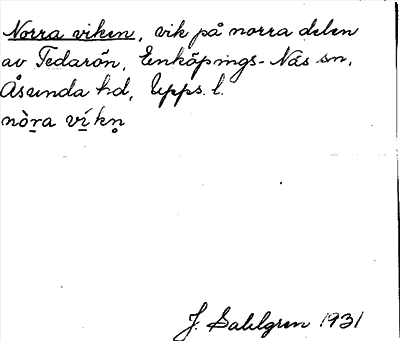 Norra viken, vik på norra delen
av Tedarön, Enköpings-Näs sn,
Åsunda hd, Upps. l.
nò̱ra ví̱kn̥
J. Sahlgren 1931